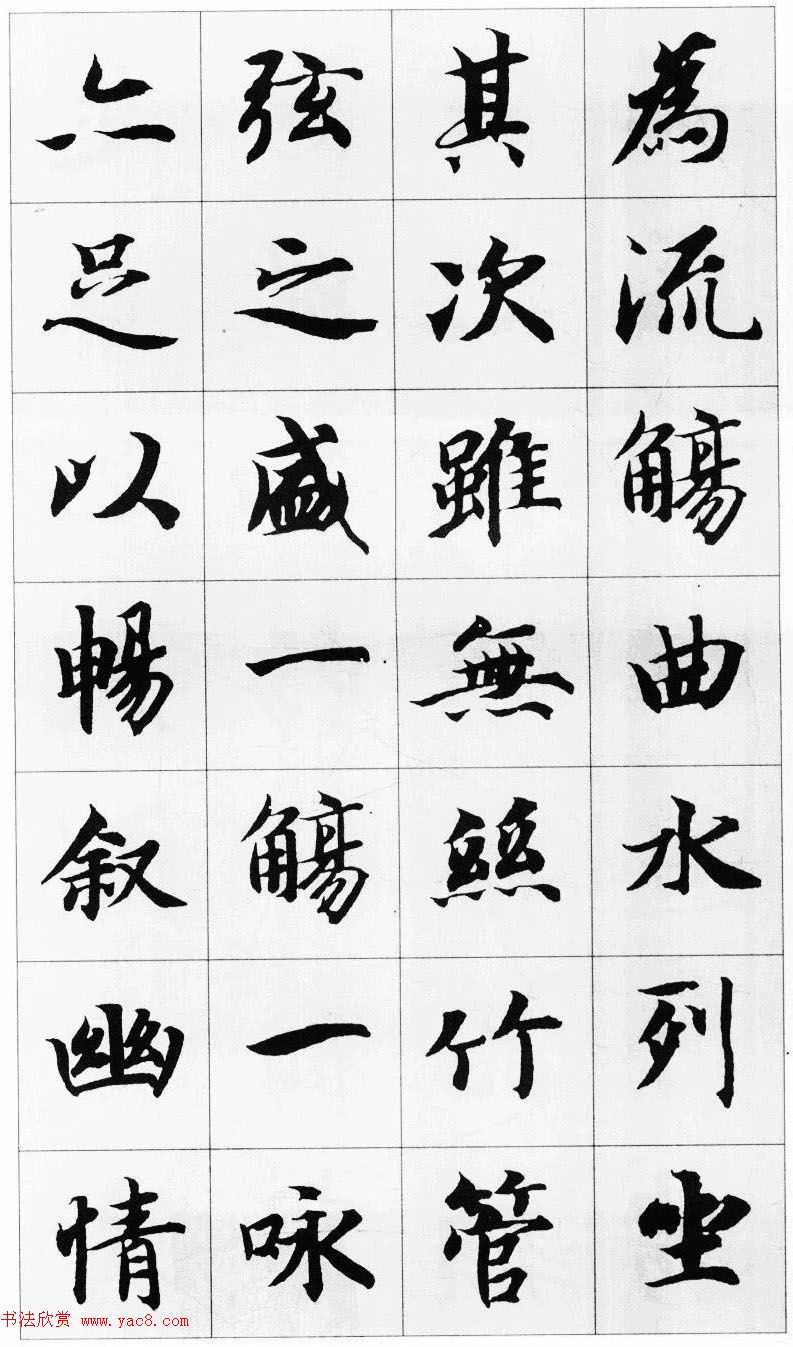 為流觴曲水列坐
其次雖無絲竹管
弦之盛一觴一咏
亦足以暢叙幽情
书法欣赏 www.yac8.com